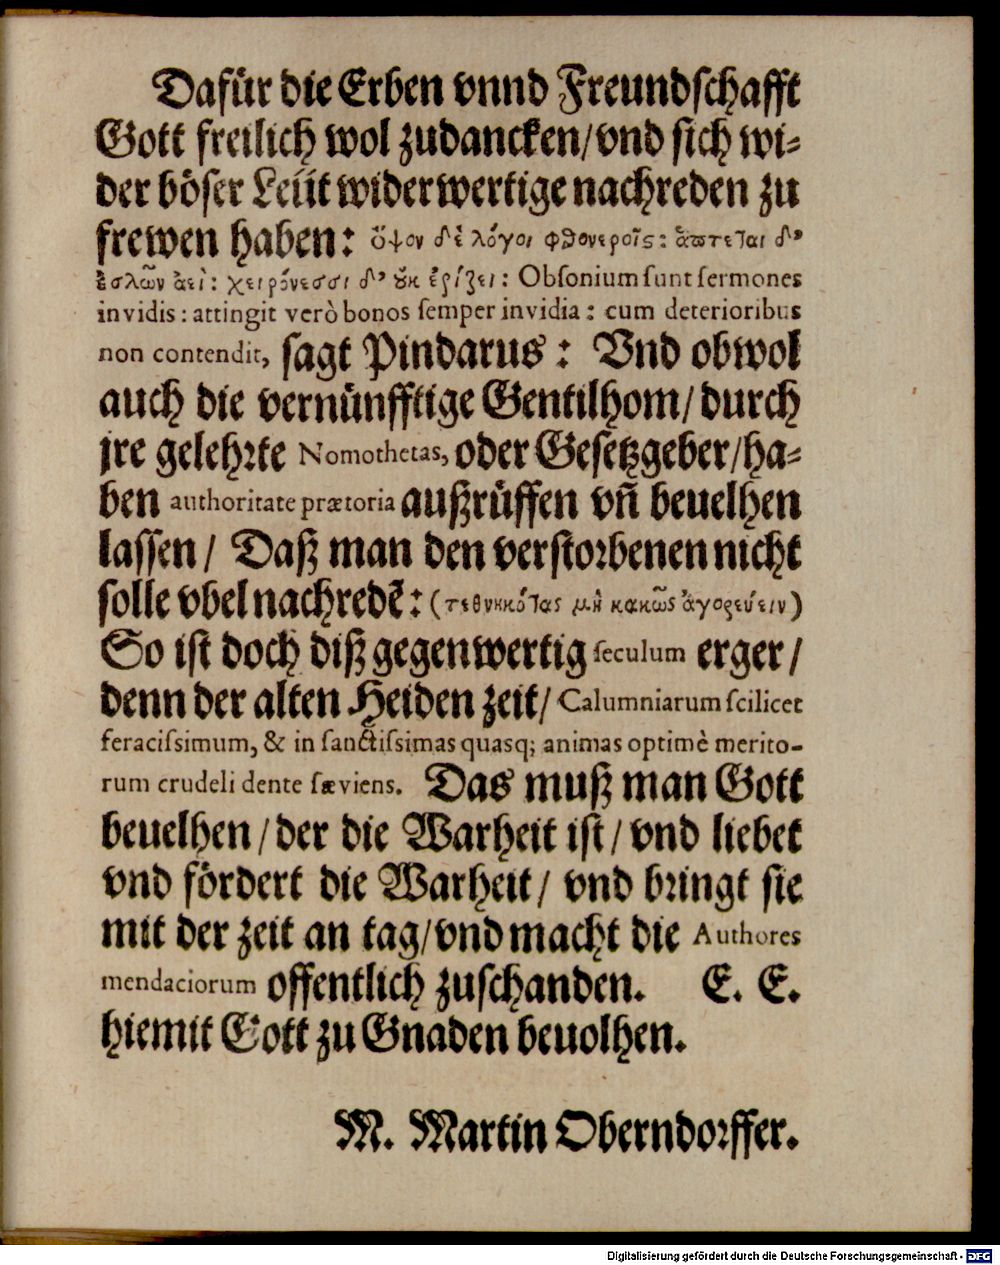 Dafür die Erben vnnd Freundschafft
Gott freilich wol zudancken/vnd sich wi-
der böser Leüt widerwertige nachreden zu
frewen haben: ὄψον δὲ λόγοι φθονεροῖς: ἅπτεται δ᾽
ἐσλῶν ἀεὶ: χειρόνεσσι δ᾽ οὐκ ἐρίζει: Obsonium sunt sermones
invidis: attingit verò bonos semper invidia: cum deterioribus
non contendit, sagt Pindarus: Vnd obwol
auch die vernünfftige Gentilhom/durch
jre gelehrte Nomothetas, oder Gesetzgeber/ha-
ben authoritate prætoria außrüffen vñ beuelhen
lassen/ Daß man den verstorbenen nicht
solle vbel nachredē: (τεθνηκότας μὴ κακῶς ἀγορεύειν)
So ist doch diß gegenwertig seculum erger/
denn der alten Heiden zeit/ Calumniarum scilicet
feracissimum, & in sanctissimas quasq; animas optimè merito-
rum crudeli dente sæviens. Das muß man Gott
beuelhen/der die Warheit ist/ vnd liebet
vnd fördert die Warheit/ vnd bringt sie
mit der zeit an tag/vnd macht die Authores
mendaciorum offentlich zuschanden. E. E.
hiemit Gott zu Gnaden beuolhen.
M. Martin Oberndorffer.
Digitalisierung gefördert durch die Deutsche Forschungsgemeinschaft - DFG